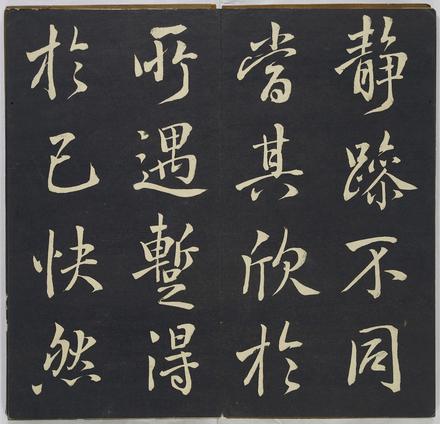 靜躁不同
當其欣於
所遇蹔得
於己快然